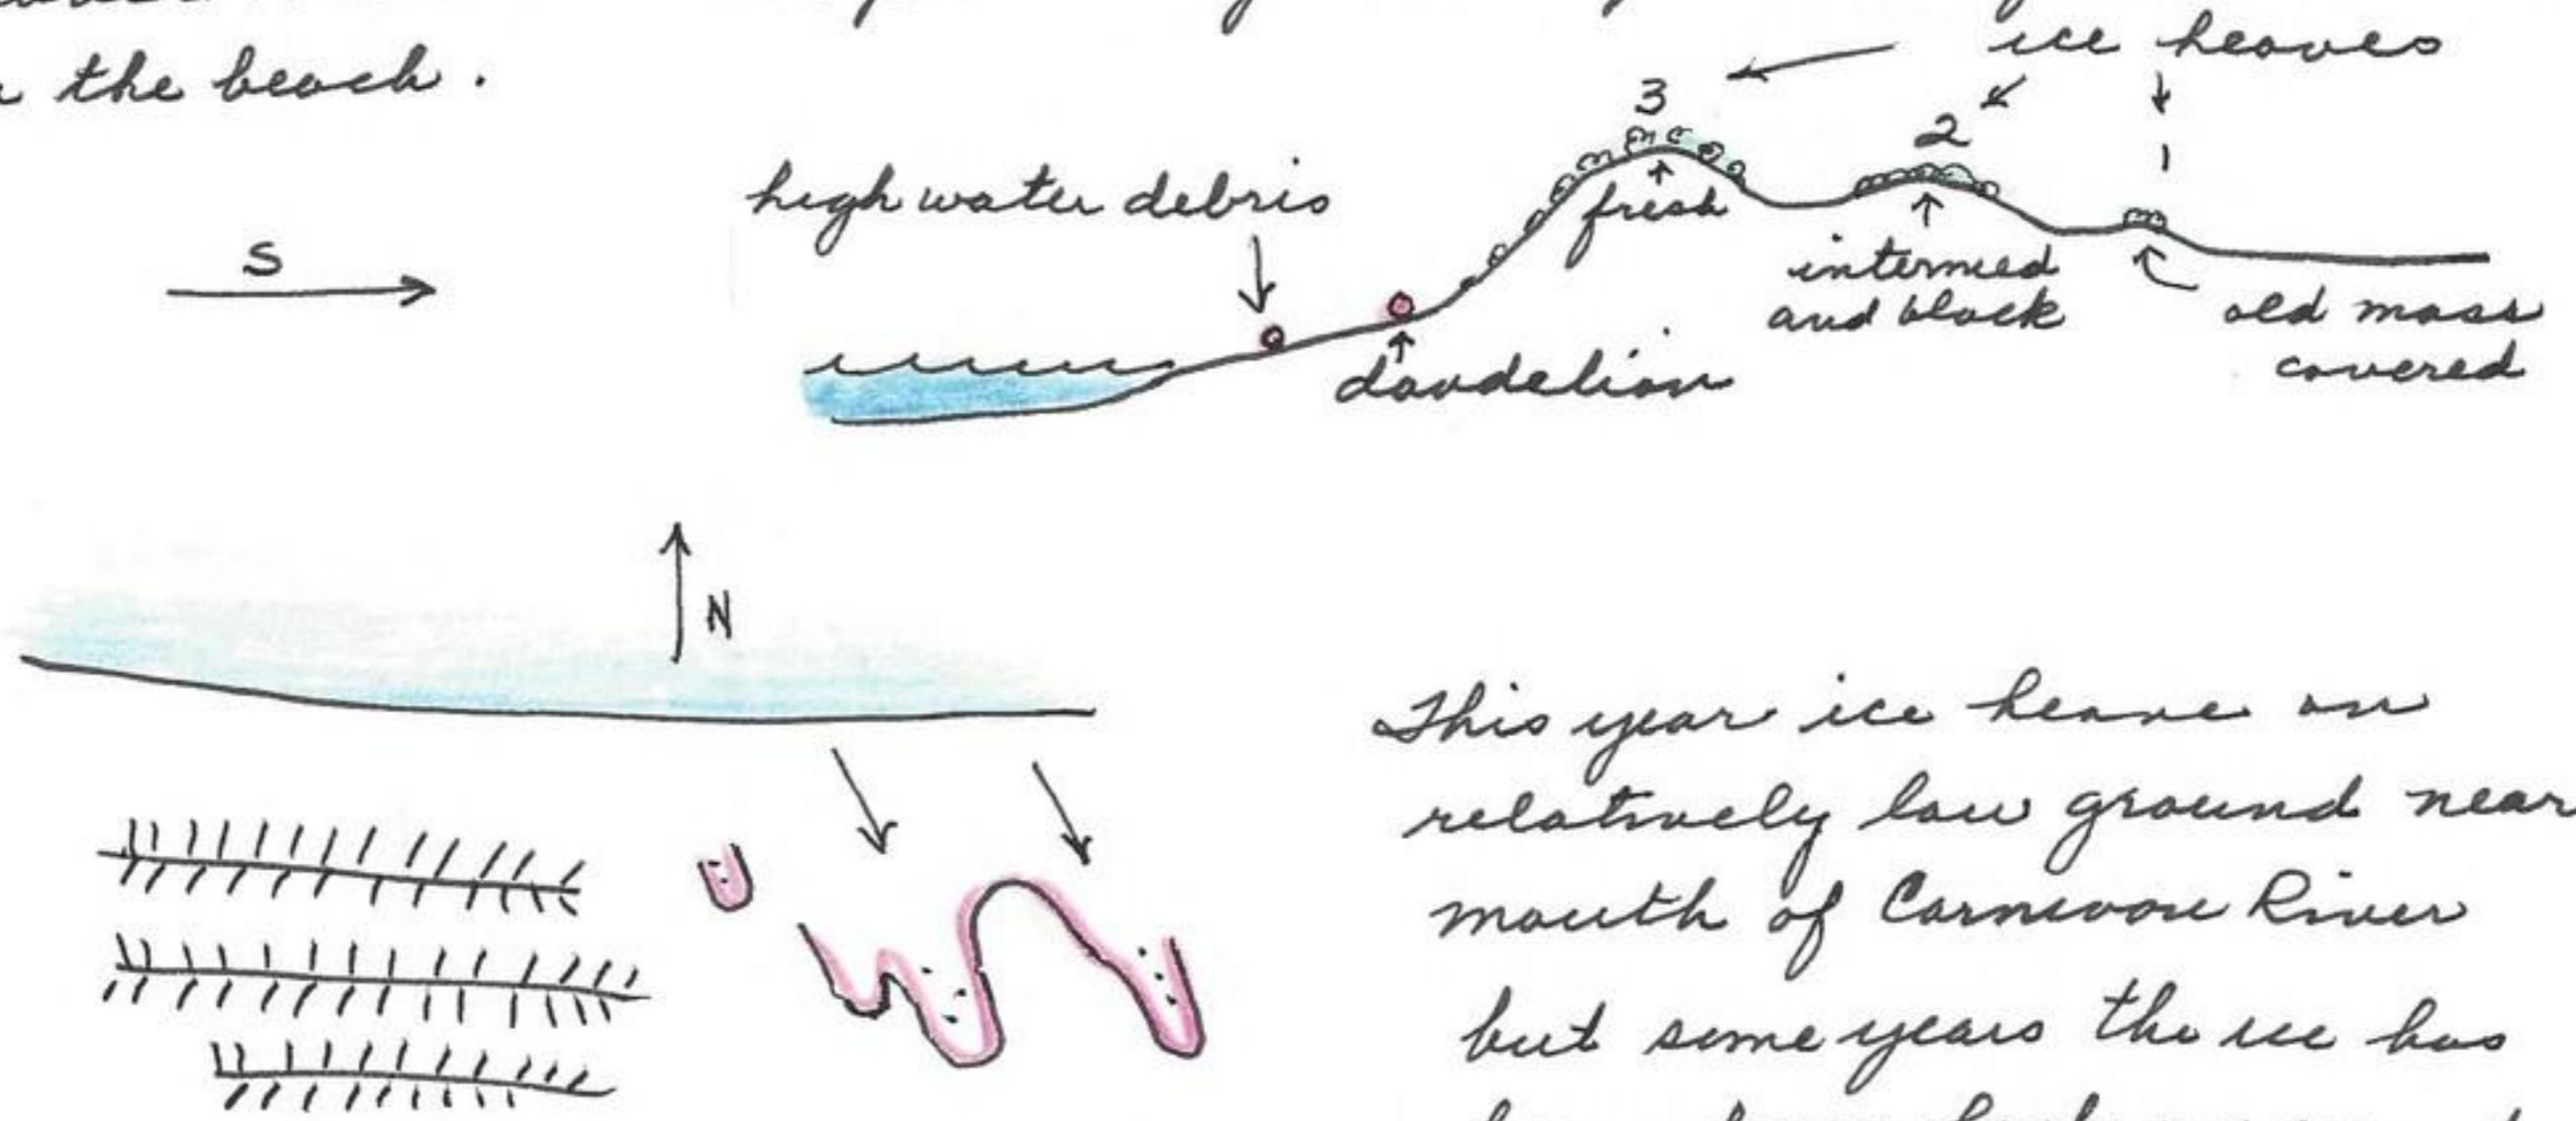 the beach.
ice heaves
3
2
1
high water debris
fresh
S
intermed
and block
old moss
covered
dandelion
N
This year ice heave on
relatively low ground near
mouth of Carnivore River
but some years the ice has